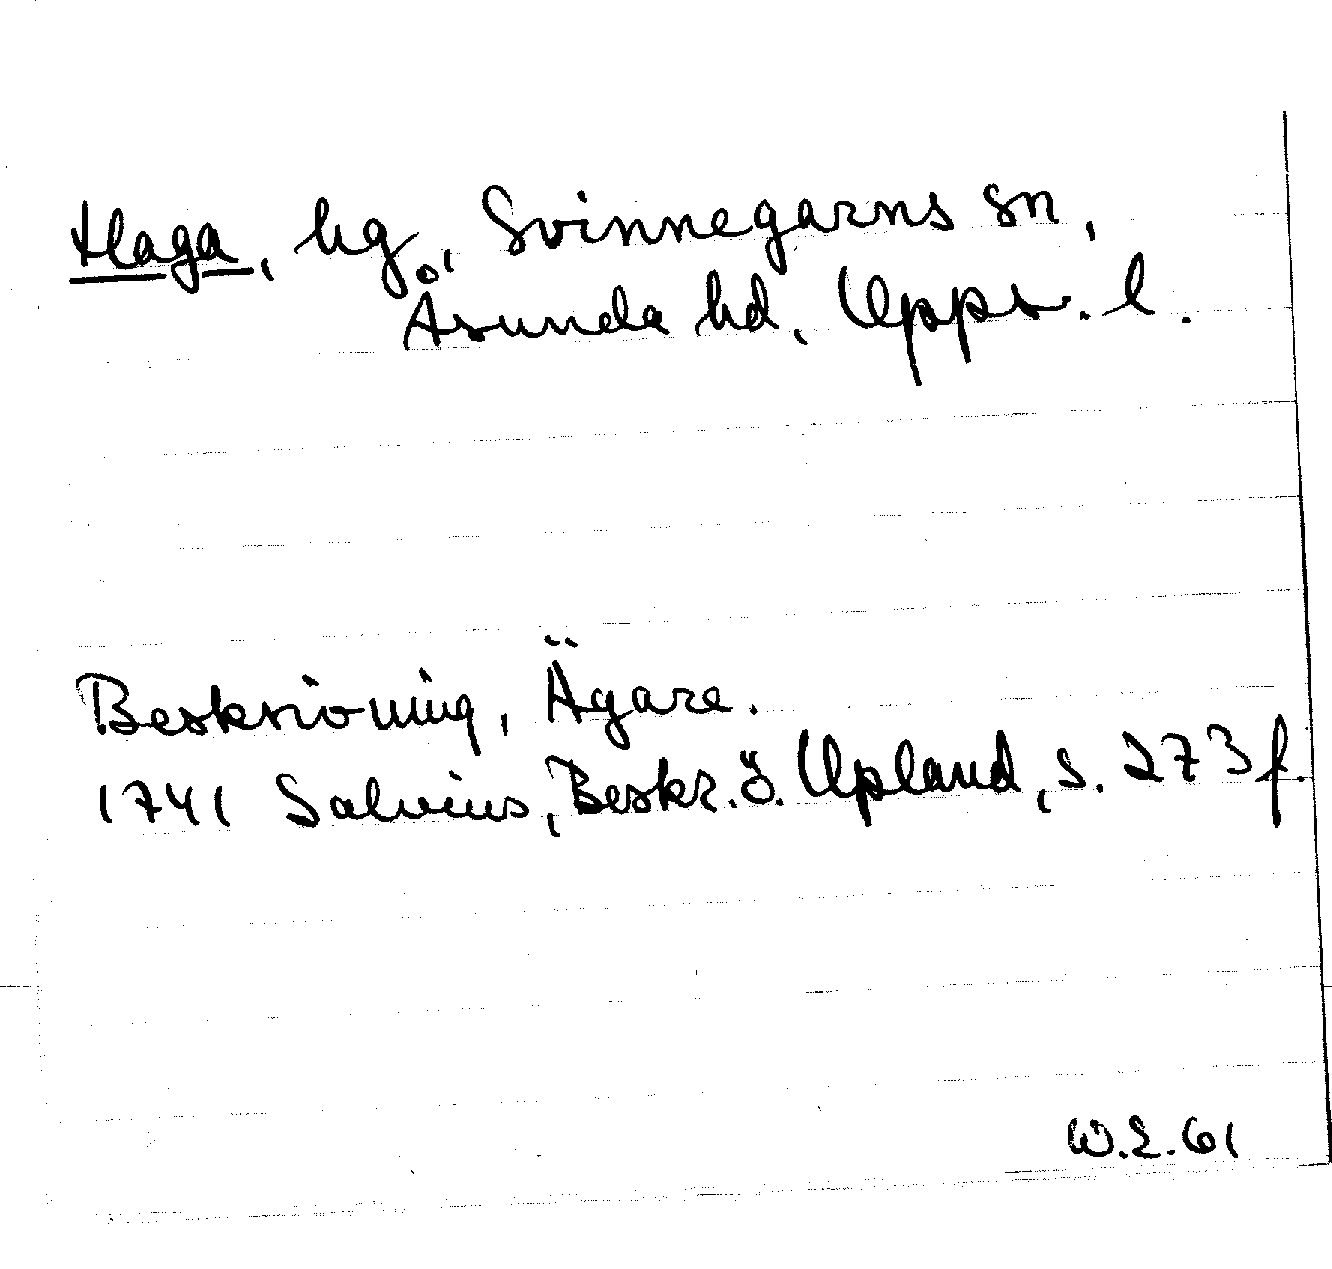 Haga, hg, Svinnegarns sn,
Åsunda hd, Upps. l.
Beskrivning, Ägare.
1741 Salvius, Beskr. ö. Upland, s. 273 f.
W.E. 61